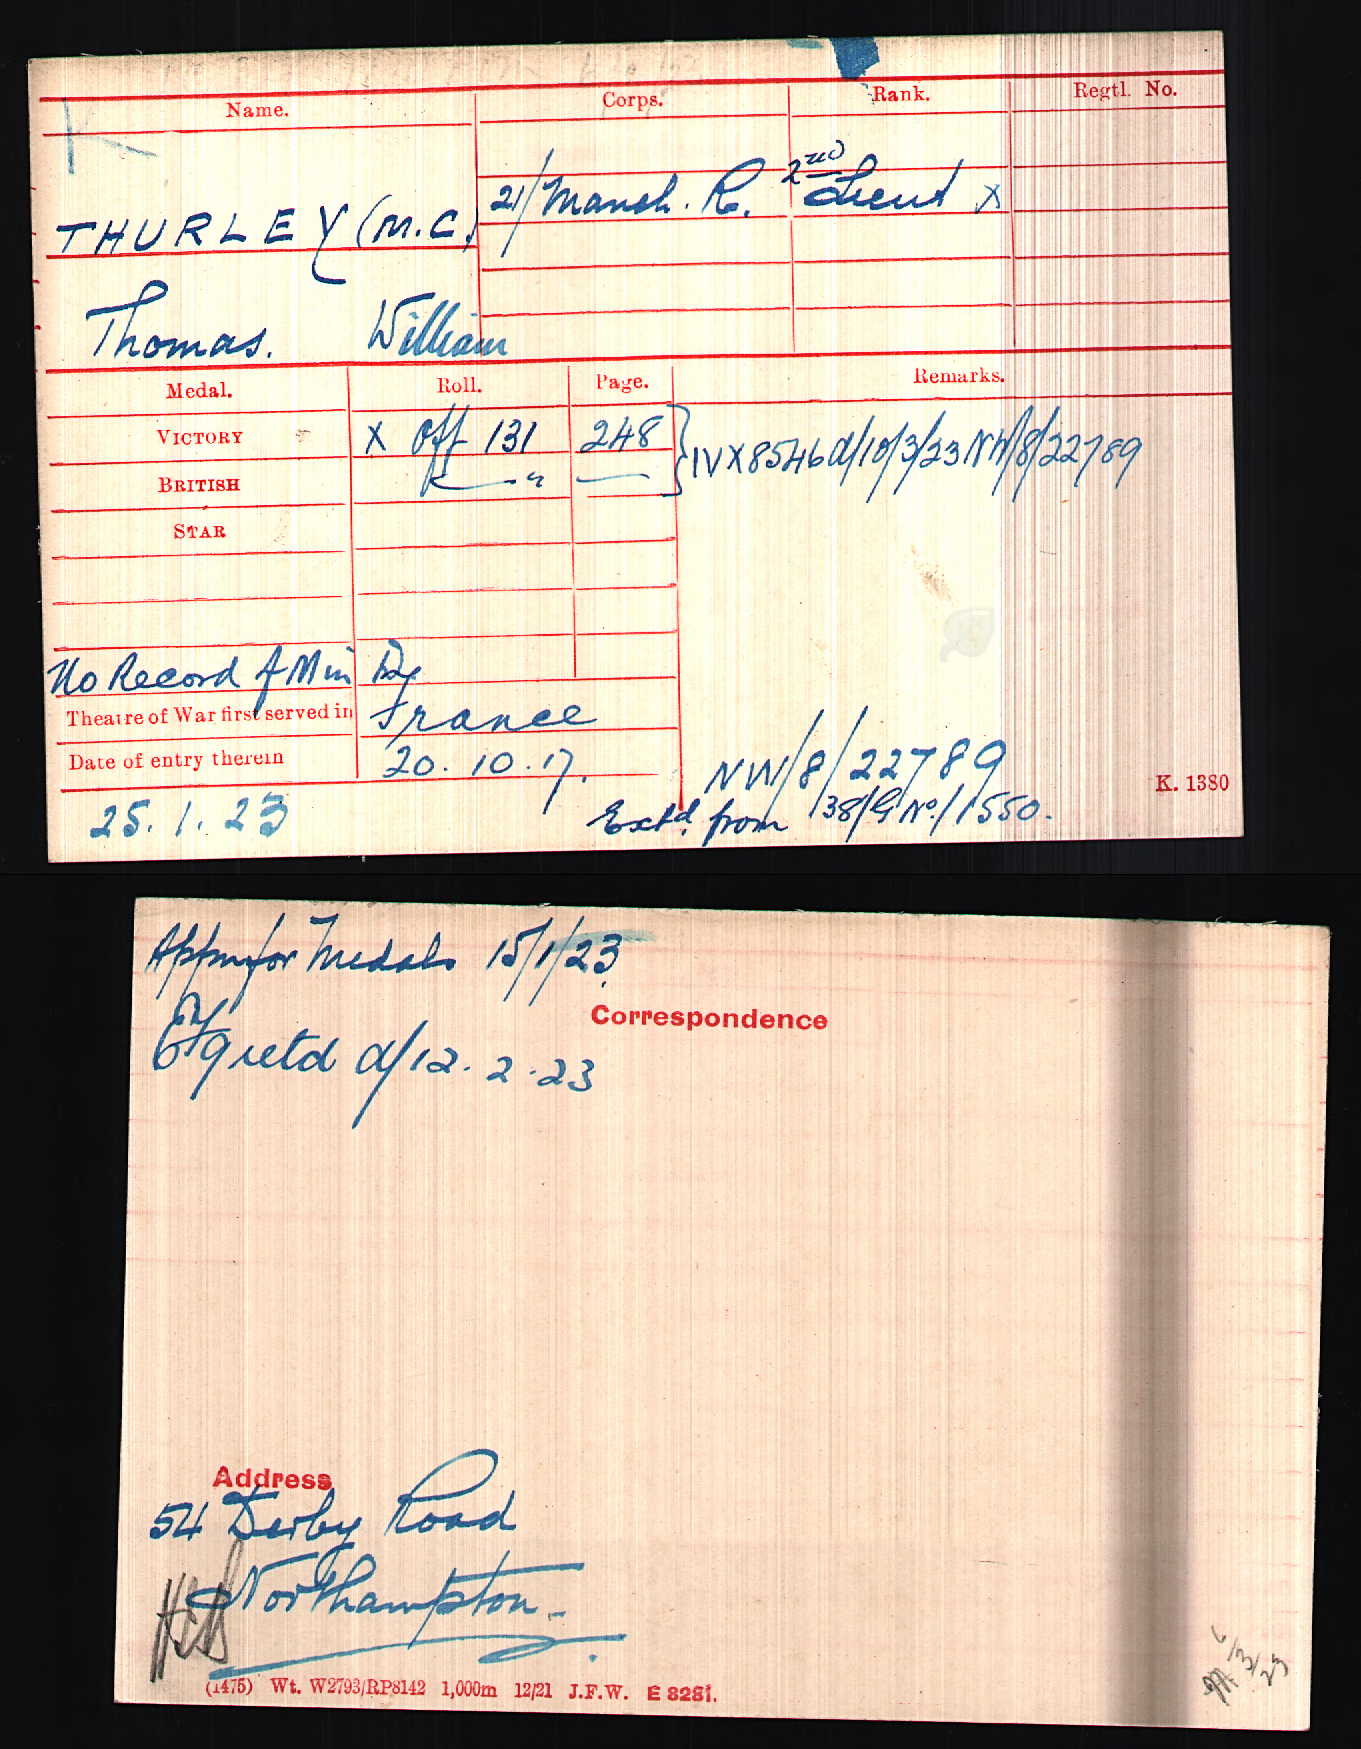 Name. Corps. Rank. Regtl. No.
THURLEY (M.C.) 21/Manch. R. 2nd Lieut X
Thomas. William
Medal. Roll. Page. Remarks.
VICTORY X Off 131 248 } IV X 8546 d/10/3/23 NW/8/22789
BRITISH — " —
STAR
No Record of Min
Theatre of War first served in France
Date of entry therein 20.10.17.
NW/8/22789
K. 1380
25.1.23 Extd. from 138/G No/1550.
Appn for Medals 15/1/23
Correspondence
retd d/12.2.23
Address
54 Derby Road
Northampton.
6/3/23
(1475) Wt. W2793/RP8142 1,000m 12/21 J.F.W. E 8281.